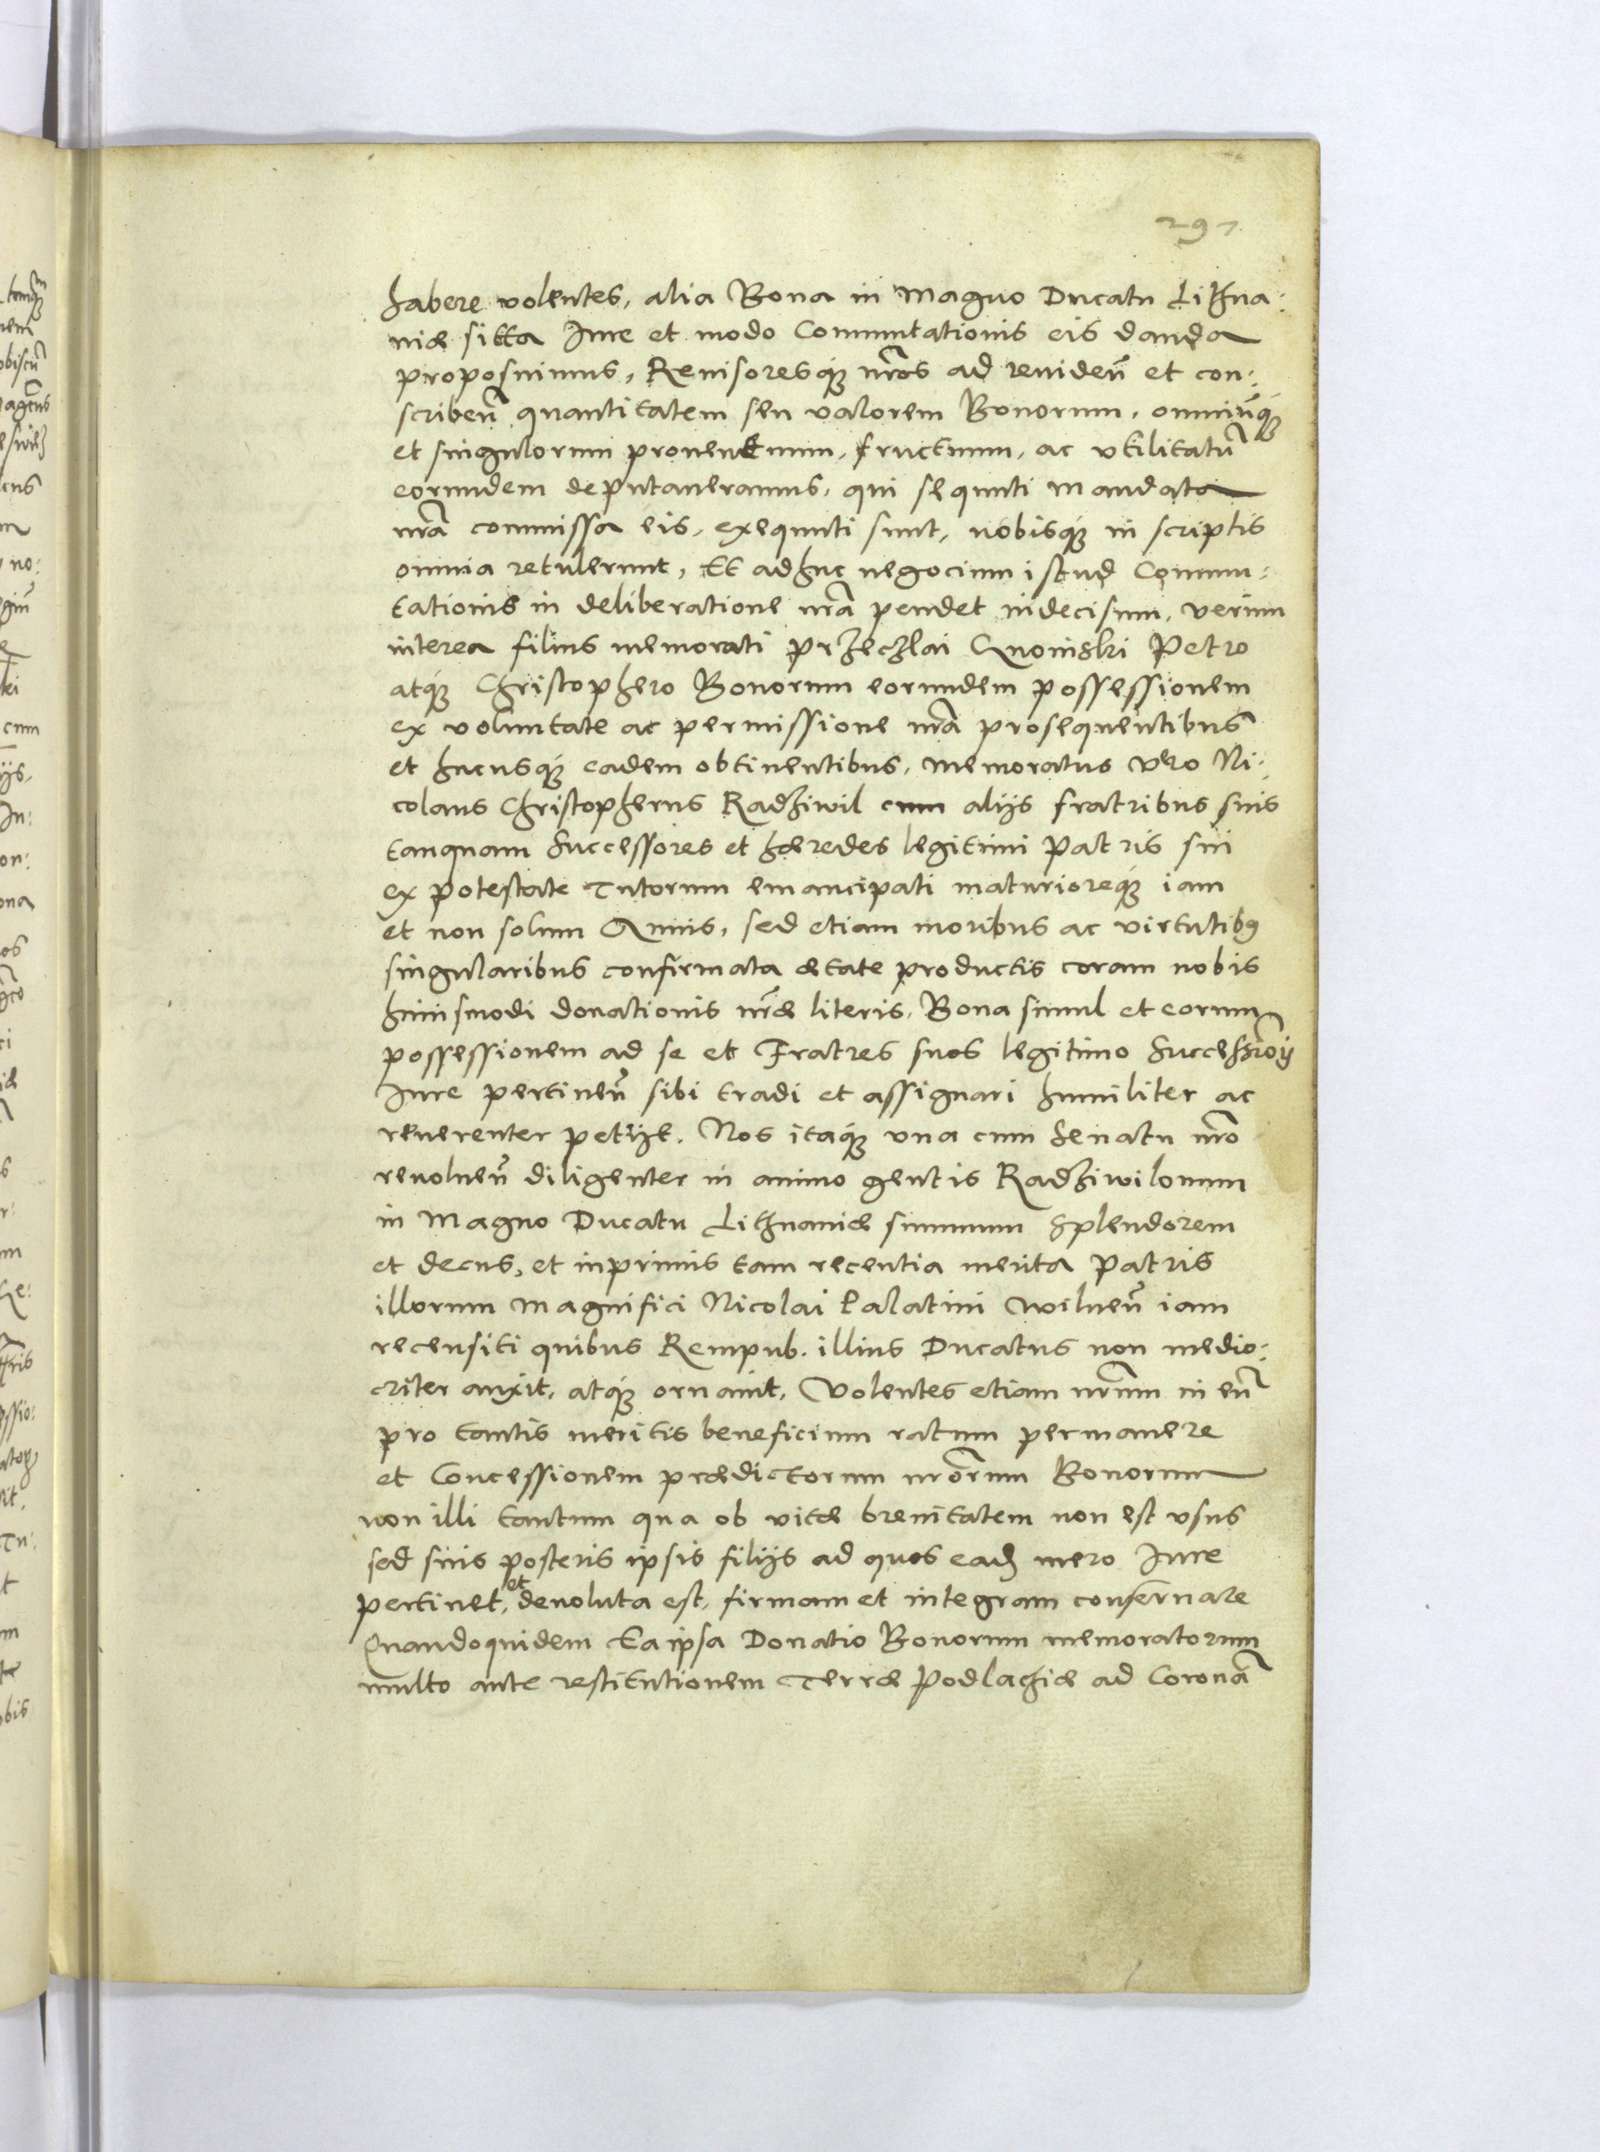 297
habere volentes, alia Bona in Magno Ducatu Lithua:
niæ sitta Iure et modo Commutationis eis danda
proposuimus, Reuisoresq́ue nr̃os ad reuideñ et con:
scribeñ quantitatem seu valorem Bonorum, omniũq́ue
et singulorum prouentuum, fructuum, ac vtilitatũ
eorundem deputaueramus, qui sequuti mandata
nrã commissa eis, exequuti sunt, nobisq́ue in scriptis
omnia retulerunt, Et adhuc negocium istud Commu:
tationis in deliberatione nrã pendet indecisum, verum
interea filius memorati Przeczlai Gnoinski Petro
atq́ue Christophero Bonorum eorundem possessionem
ex voluntate ac permissione nrã prosequentibus
et hucusq́ue eadem obtinentibus, memoratus vero Ni:
colaus Christopherus Radziwil cum alijs fratribus suis
tanquam Successores et hæredes legitimi Patris sui
ex potestate Tutorum emancipati maturioreq́ue iam
et non solum Annis, sed etiam moribus ac virtutib9
singularibus confirmata ætate productis coram nobis
huiusmodi donationis nr̃æ literis, Bona simul et eorum
possessionem ad se et Fratres suos legitimo Successiõis
Iure pertineñ sibi tradi et assignari humiliter ac
reuerenter petijt. Nos itaq́ue vna cum Senatu nr̃o
reuolueñ diligenter in animo gentis Radziwilonum
in Magno Ducatu Lithuaniæ summum Splendorem
et decus, et inprimis tam recentia merita Patris
illorum Magnifici Nicolai Palatini Wilneñ iam
recensiti quibus Rempub. illius Ducatus non medio:
criter auxit, atq́ue ornauit, Volentes etiam nr̃um in eũ
pro tantis meritis beneficium ratum permanere
et Concessionem prædictorum nr̃orum Bonorum
non illi tantum qua ob vitæ breuitatem non est vsus
sed suis posteris ipsis filijs ad quos eadẽ mero Iure
pertinet, et deuoluta est, firmam et integram conseruare
Quandoquidem Ea ipsa Donatio Bonorum memoratorum
multo ante restitutionem Terræ Podlachiæ ad Coronã